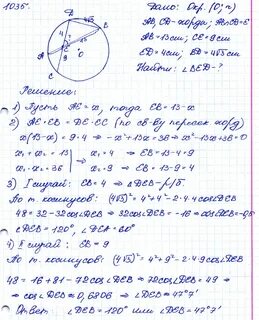 1035.
Дано: Окр. (O; r)
AB, CD-хорда; AB∩CD=E
AB=13см; CE=9см
ED=4см; BD=4√3см
Найти: ∠BED-?
Решение:
1) Пусть AE=x, тогда EB=13-x
2) AE·EB = DE·EC (по св-ву пересек. хорд)
x(13-x)=9·4 ⇔ -x²+13x=36 ⇔ x²-13x+36=0
x₁+x₂=13
x₁·x₂=36
x₁=4 ⇒ EB=13-4=9
x₂=9 ⇒ EB=13-9=4
3) I случай: EB=4 ⇒ ΔDEB-р/б
По т. косинусов: (4√3)²=4²+4²-2·4·4cosDEB
48=32-32cosDEB ⇔ 32cosDEB=-16 ⇔ cosDEB=-0,5
∠DEB=120°, ∠DEA=60°
4) II случай: EB=9
По т. косинусов: (4√3)²=4²+9²-2·4·9cosDEB
48=16+81-72cosDEB ⇔ 72cosDEB=49 ⇔
⇔ cosDEB≈0,6806 ⇒ ∠DEB≈47°7'
Ответ: ∠DEB=120° или ∠DEB≈47°7'